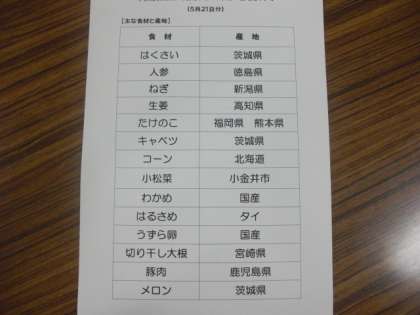 (5月21日分)
[主な食材と産地]
食 材 産 地
はくさい 茨城県
人参 徳島県
ねぎ 新潟県
生姜 高知県
たけのこ 福岡県 熊本県
キャベツ 茨城県
コーン 北海道
小松菜 小金井市
わかめ 国産
はるさめ タイ
うずら卵 国産
切り干し大根 宮崎県
豚肉 鹿児島県
メロン 茨城県